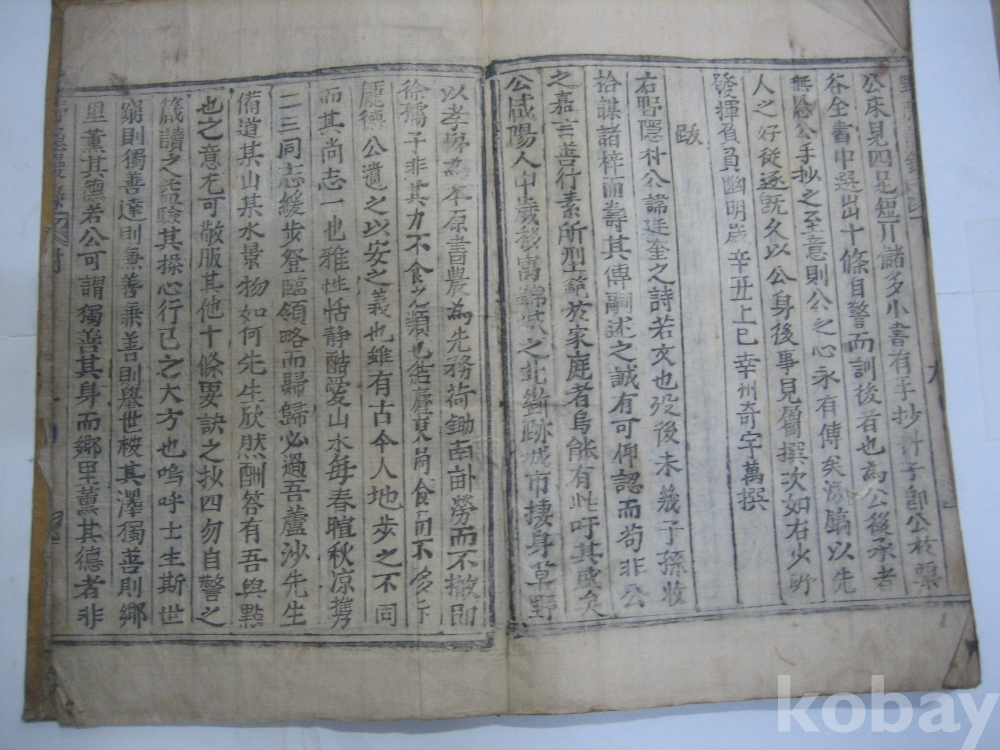 公床見四足短丌儲多小書有手抄許子卽公於栗
谷全書中選出十條自警而訓後者也爲公後承者
無忘公手抄之至意則公之心永有傳矣以先
人之好從逐旣久以公身後事見屬撰次如右少所
發揮負負幽明歲辛丑上巳幸州奇宇萬撰
跋
右野隱朴公諱廷奎之詩若文也歿後未幾子孫收
拾謀諸梓而壽其傳嗣述之誠有可仰認而苟非公
之嘉言善行素所型範於家庭者烏能有此吁其盛矣
公咸陽人中歲移寓錦城之北斂跡城市棲身草野
以孝悌爲本原書農爲先務荷鋤南畝勞而不撤卽
徐孺子非其力不食之類也結廬東崗食而不多
龐德公遺之以安之義也雖有古今人地步之不同
而其尚志一也雅性恬靜酷愛山水每春暄秋凉携
二三同志緩步登臨領略而歸歸必過吾蘆沙先生
備道某山某水景物如何先生欣然酬答有吾與點
也之意尤可敬服其他十條要訣之抄四勿自警之
箴讀之至驗其操心行己之大方也嗚呼士生斯世
窮則獨善達則兼善兼善則擧世被其澤獨善則鄕
里薰其德若公可謂獨善其身而鄕里薰其德者非
kobay